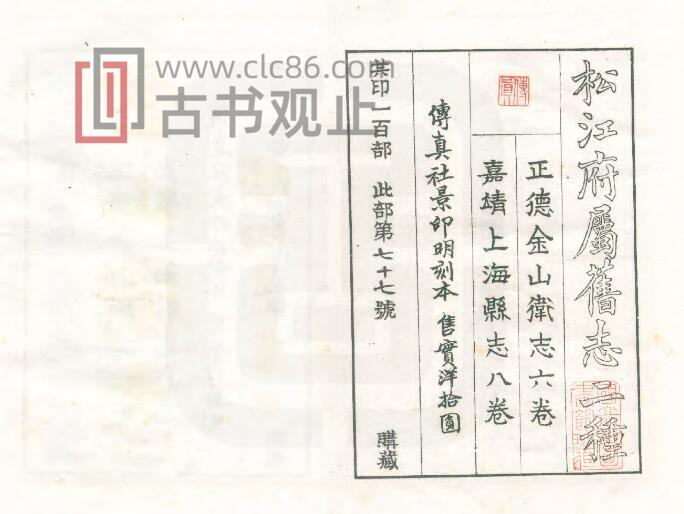 松江府屬舊志二種
正德金山衛志六卷
嘉靖上海縣志八卷
傳真
傳真社景印明刻本 售實洋拾圓
共印一百部 此部第七十七號 購藏
www.clc86.com
古书观止